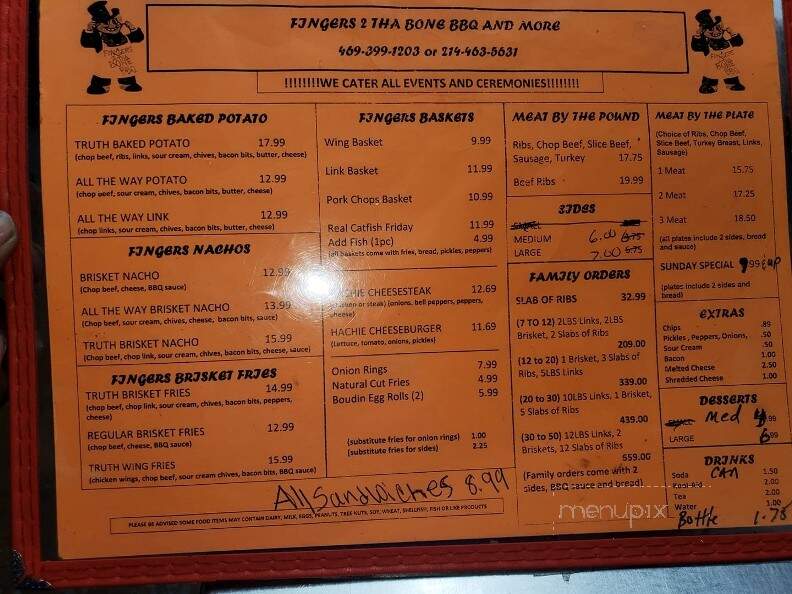 FINGERS 2 THA BONE BBQ AND MORE
469-399-1203 or 214-463-5631
!!!!!!!!WE CATER ALL EVENTS AND CEREMONIES!!!!!!!!
FINGERS BAKED POTATO
TRUTH BAKED POTATO 17.99
(chop beef, ribs, links, sour cream, chives, bacon bits, butter, cheese)
ALL THE WAY POTATO 12.99
(chop beef, sour cream, chives, bacon bits, butter, cheese)
ALL THE WAY LINK 12.99
(chop links, sour cream, chives, bacon bits, butter, cheese)
FINGERS NACHOS
BRISKET NACHO 12.99
(Chop beef, cheese, BBQ sauce)
ALL THE WAY BRISKET NACHO 13.99
(Chop beef, sour cream, chives, cheese, bacon bits, sauce)
TRUTH BRISKET NACHO 15.99
(Chop beef, chop link, sour cream, chives, bacon bits, cheese, sauce)
FINGERS BRISKET FRIES
TRUTH BRISKET FRIES 14.99
(chop beef, chop link, sour cream, chives, bacon bits, peppers,
cheese)
REGULAR BRISKET FRIES 12.99
(chop beef, cheese, BBQ sauce)
TRUTH WING FRIES 15.99
(chicken wings, chop beef, sour cream chives, bacon bits, BBQ sauce)
FINGERS BASKETS
Wing Basket 9.99
Link Basket 11.99
Pork Chops Basket 10.99
Real Catfish Friday 11.99
Add Fish (1pc) 4.99
(all baskets come with fries, bread, pickles, peppers)
CHEESESTEAK 12.69
or steak) (onions, bell peppers, peppers,
cheese)
HACHIE CHEESEBURGER 11.69
(Lettuce, tomato, onions, pickles)
Onion Rings 7.99
Natural Cut Fries 4.99
Boudin Egg Rolls (2) 5.99
(substitute fries for onion rings) 1.00
(substitute fries for sides) 2.25
All Sandwiches 8.99
PLEASE BE ADVISED SOME FOOD ITEMS MAY CONTAIN DAIRY, MILK, EGGS, PEANUTS, TREE NUTS, SOY, WHEAT, SHELLFISH, FISH OR LIKE PRODUCTS
MEAT BY THE POUND
Ribs, Chop Beef, Slice Beef,
Sausage, Turkey 17.75
Beef Ribs 19.99
SIDES
MEDIUM 6.00
LARGE 7.00
FAMILY ORDERS
SLAB OF RIBS 32.99
(7 TO 12) 2LBS Links, 2LBS
Brisket, 2 Slabs of Ribs
209.00
(12 to 20) 1 Brisket, 3 Slabs of
Ribs, 5LBS Links
339.00
(20 to 30) 10LBS Links, 1 Brisket,
5 Slabs of Ribs
439.00
(30 to 50) 12LBS Links, 2
Briskets, 12 Slabs of Ribs
659.00
(Family orders come with 2
sides, BBQ sauce and bread)
MEAT BY THE PLATE
(Choice of Ribs, Chop Beef,
Slice Beef, Turkey Breast, Links,
Sausage)
1 Meat 15.75
2 Meat 17.25
3 Meat 18.50
(all plates include 2 sides, bread
and sauce)
SUNDAY SPECIAL 9.99 & up
(plates include 2 sides and
bread)
EXTRAS
Chips .89
Pickles, Peppers, Onions, .50
Sour Cream .50
Bacon 1.00
Melted Cheese 2.50
Shredded Cheese 1.00
DESSERTS
Med .99
LARGE 6.99
DRINKS
Soda CAN 1.50
Kool-Aid 2.00
Tea 2.00
Water 1.00
Bottle 1.75
menupix